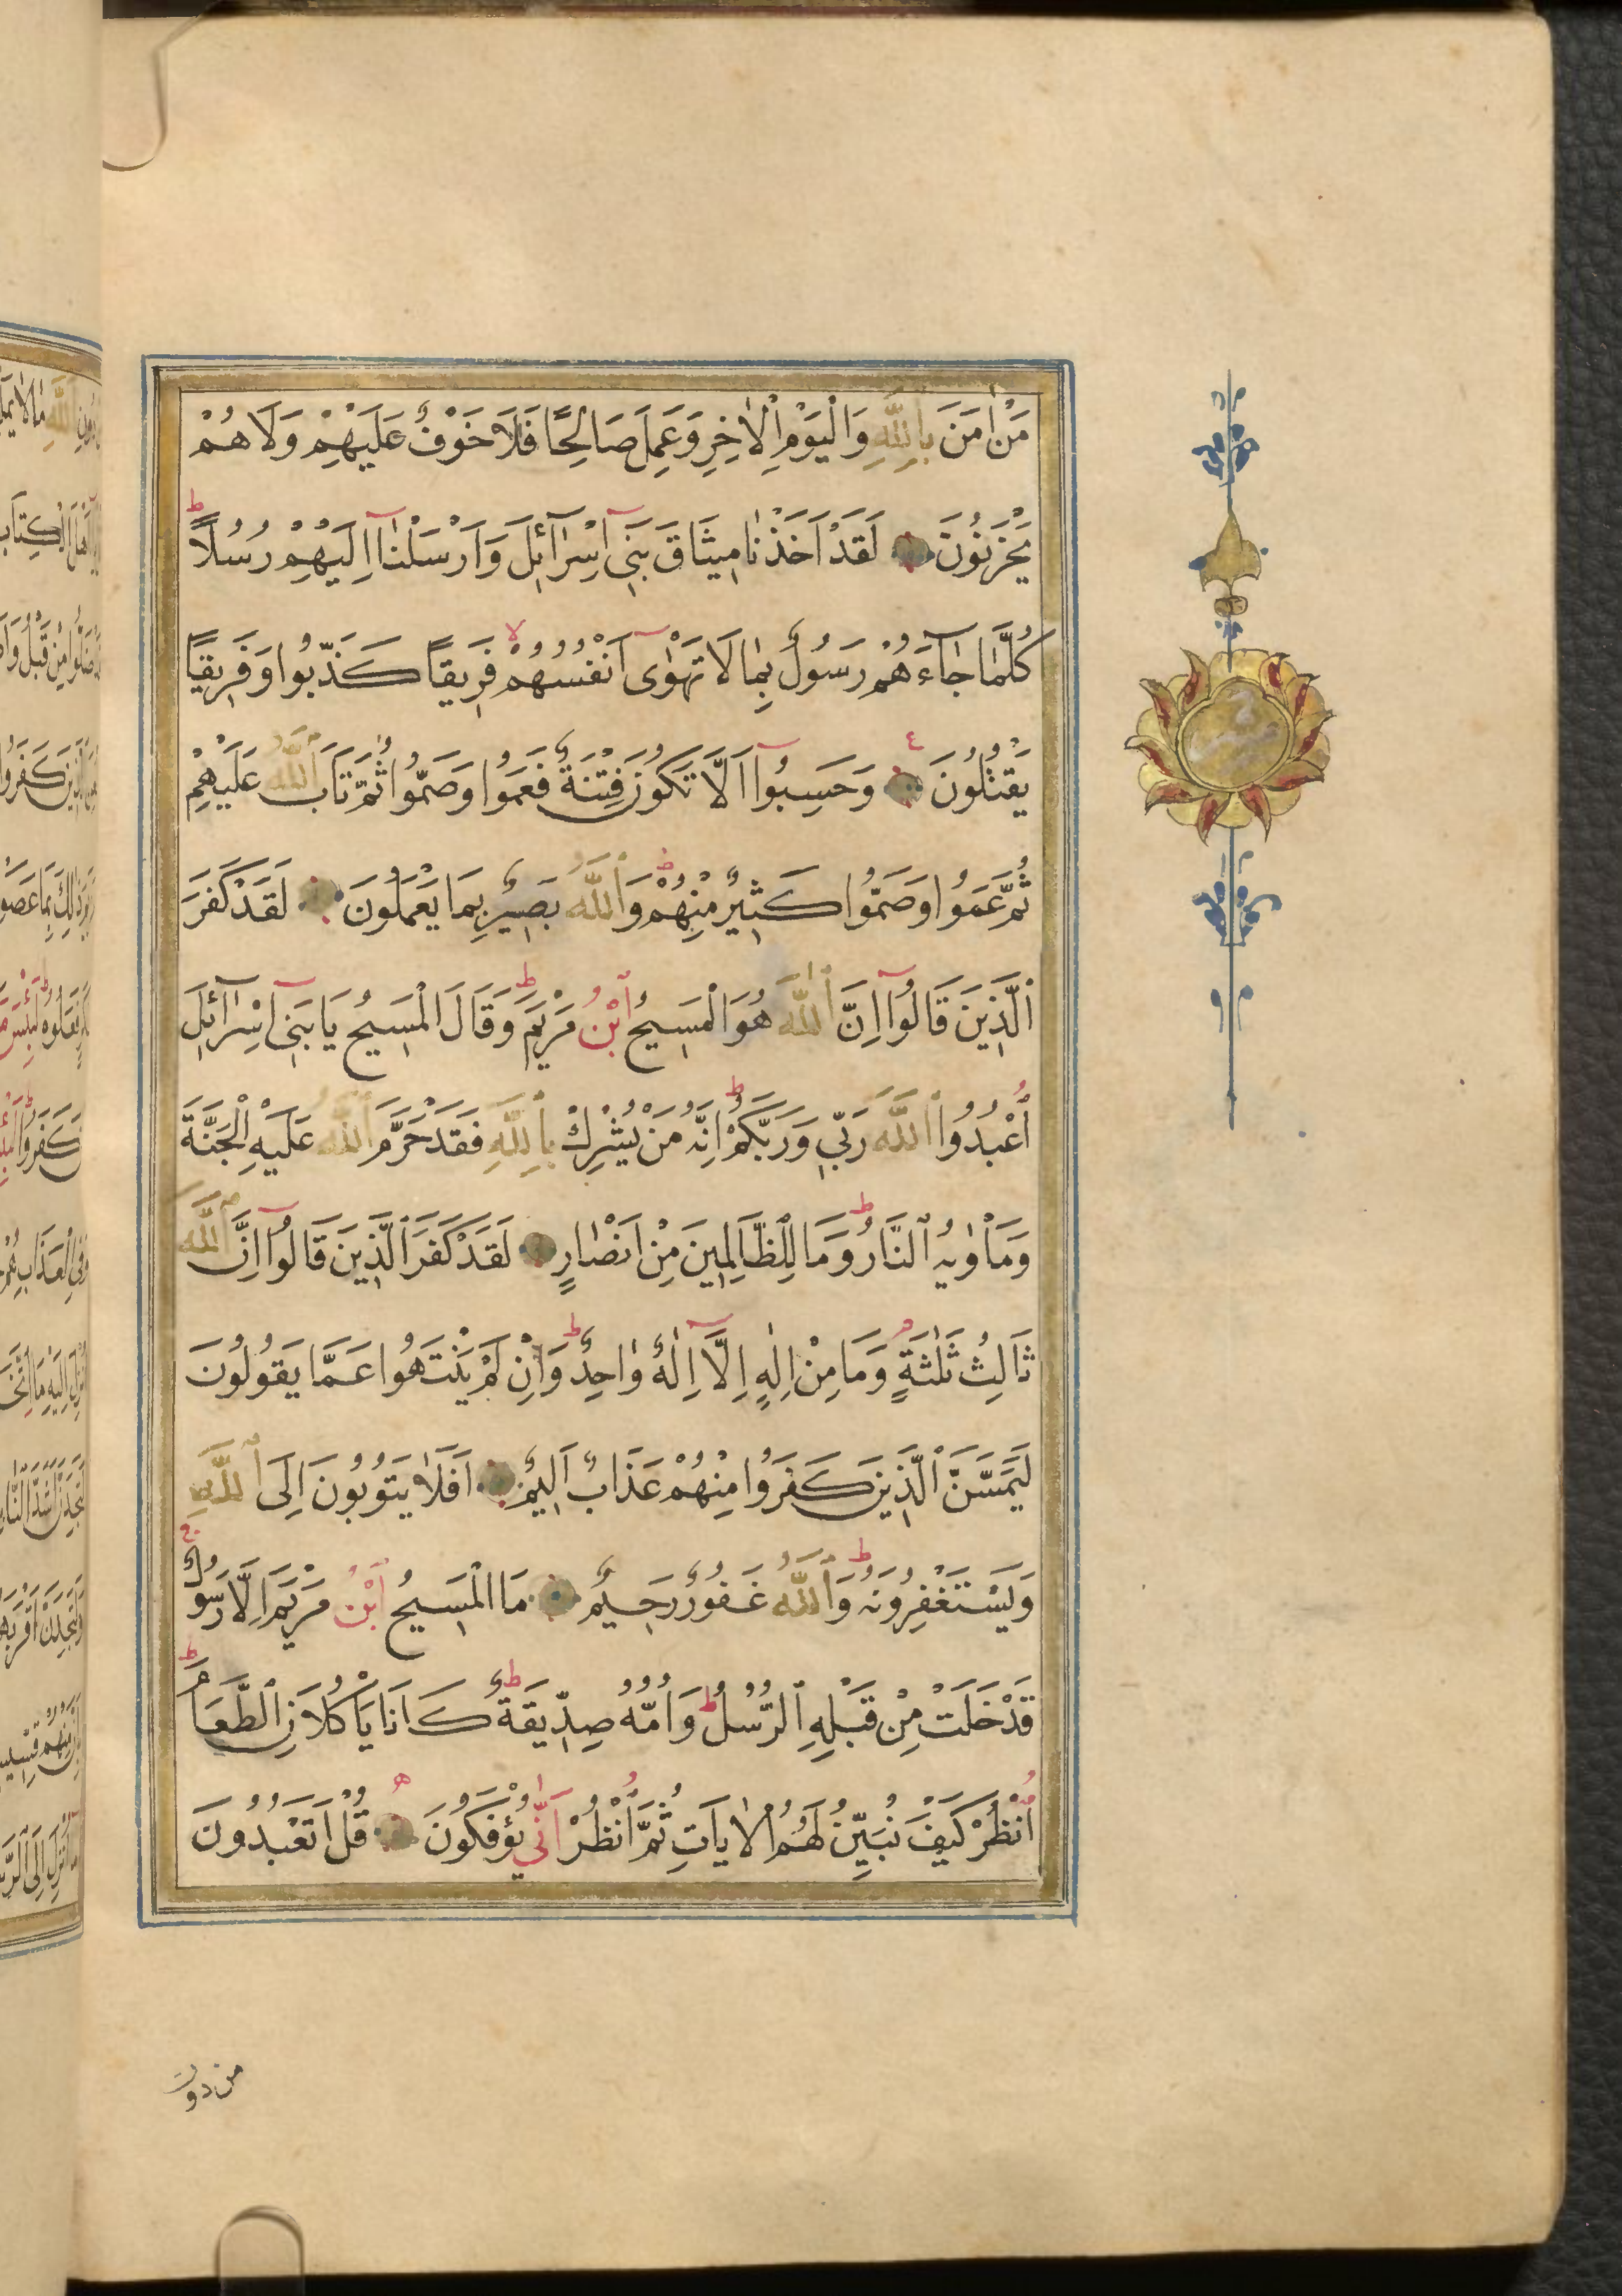 مَنْ اٰمَنَ بِاللّٰهِ وَالْيَوْمِ الْاٰخِرِ وَعَمِلَ صَالِحًا فَلَا خَوْفٌ عَلَيْهِمْ وَلَا هُمْ
يَحْزَنُونَ لَقَدْ اَخَذْنَا مِيثَاقَ بَنِٓى اِسْرَٓائِلَ وَاَرْسَلْنَٓا اِلَيْهِمْ رُسُلًا ط
كُلَّمَا جَٓاءَهُمْ رَسُولٌ بِمَا لَا تَهْوٰٓى اَنْفُسُهُمْ لا فَرِيقًا كَذَّبُوا وَفَرِيقًا
يَقْتُلُونَ ع وَحَسِبُٓوا اَلَّا تَكُونَ فِتْنَةٌ فَعَمُوا وَصَمُّوا ثُمَّ تَابَ اللّٰهُ عَلَيْهِمْ
ثُمَّ عَمُوا وَصَمُّوا كَثِيرٌ مِنْهُمْ ط وَاللّٰهُ بَصِيرٌ بِمَا يَعْمَلُونَ لَقَدْ كَفَرَ
الَّذِينَ قَالُٓوا اِنَّ اللّٰهَ هُوَ الْمَسِيحُ ابْنُ مَرْيَمَ ط وَقَالَ الْمَسِيحُ يَا بَنِٓى اِسْرَٓائِلَ
اُعْبُدُوا اللّٰهَ رَبِّى وَرَبَّكُمْ ط اِنَّهُ مَنْ يُشْرِكْ بِاللّٰهِ فَقَدْ حَرَّمَ اللّٰهُ عَلَيْهِ الْجَنَّةَ
وَمَاْوٰيهُ النَّارُ ط وَمَا لِلظَّالِمِينَ مِنْ اَنْصَارٍ لَقَدْ كَفَرَ الَّذِينَ قَالُٓوا اِنَّ اللّٰهَ
ثَالِثُ ثَلٰثَةٍ م وَمَا مِنْ اِلٰهٍ اِلَّٓا اِلٰهٌ وَاحِدٌ ط وَاِنْ لَمْ يَنْتَهُوا عَمَّا يَقُولُونَ
لَيَمَسَّنَّ الَّذِينَ كَفَرُوا مِنْهُمْ عَذَابٌ اَلِيمٌ اَفَلَا يَتُوبُونَ اِلَى اللّٰهِ
وَيَسْتَغْفِرُونَهُ ط وَاللّٰهُ غَفُورٌ رَحِيمٌ مَا الْمَسِيحُ ابْنُ مَرْيَمَ اِلَّا رَسُولٌ ج
قَدْ خَلَتْ مِنْ قَبْلِهِ الرُّسُلُ ط وَاُمُّهُ صِدِّيقَةٌ ط كَانَا يَاْكُلَانِ الطَّعَامَ ط
اُنْظُرْ كَيْفَ نُبَيِّنُ لَهُمُ الْاٰيَاتِ ثُمَّ انْظُرْ اَنّٰى يُؤْفَكُونَ ه قُلْ اَتَعْبُدُونَ
من دون